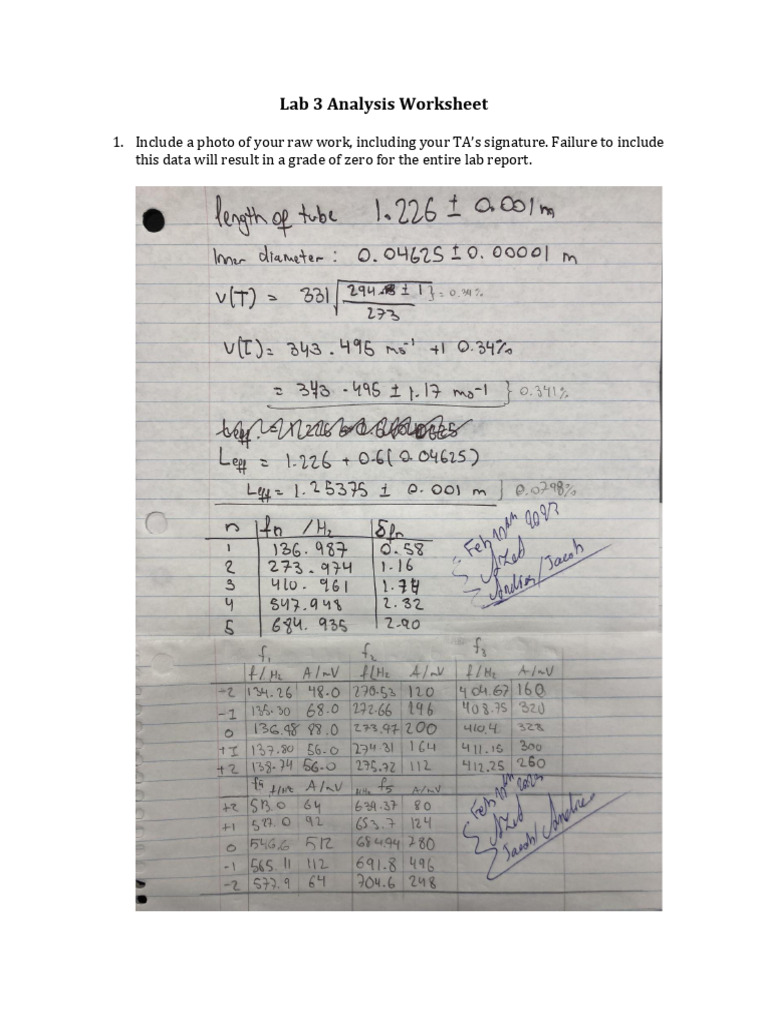 Lab 3 Analysis Worksheet
1. Include a photo of your raw work, including your TA's signature. Failure to include
this data will result in a grade of zero for the entire lab report.
length of tube 1.226 ± 0.001m
Inner diameter : 0.04625 ± 0.00001 m
V(T) = 331 √ 294. ± 1 } = 0.34%
273
V(T) = 343.495 ms⁻¹ +1 0.34%
= 343.495 ± 1.17 ms⁻¹ } 0.341%
Leff = 1.226 + 0.6(0.04625)
Leff = 1.25375 ± 0.001 m } 0.0798%
n fn /Hz δfn
1 136.987 0.58
2 273.974 1.16
3 410.961 1.74
4 547.948 2.32
5 684.935 2.90
Feb
Azed
Andrei/Jacob
f₁ f₂ f₃
f/Hz A/mV f/Hz A/mV f/Hz A/mV
-2 134.26 48.0 270.53 120 404.67 160
-1 135.30 68.0 272.66 196 408.75 320
0 136.98 88.0 273.97 200 410.4 328
+1 137.80 56.0 274.31 164 411.15 300
+2 138.74 56.0 275.72 112 412.25 260
f₄ f/Hz A/mV f₅ A/mV
+2 513.0 64 639.37 80
+1 527.0 92 653.7 124
0 546.6 512 684.94 280
-1 565.11 112 691.8 496
-2 577.9 64 704.6 248
Feb
Azed
Jacob/